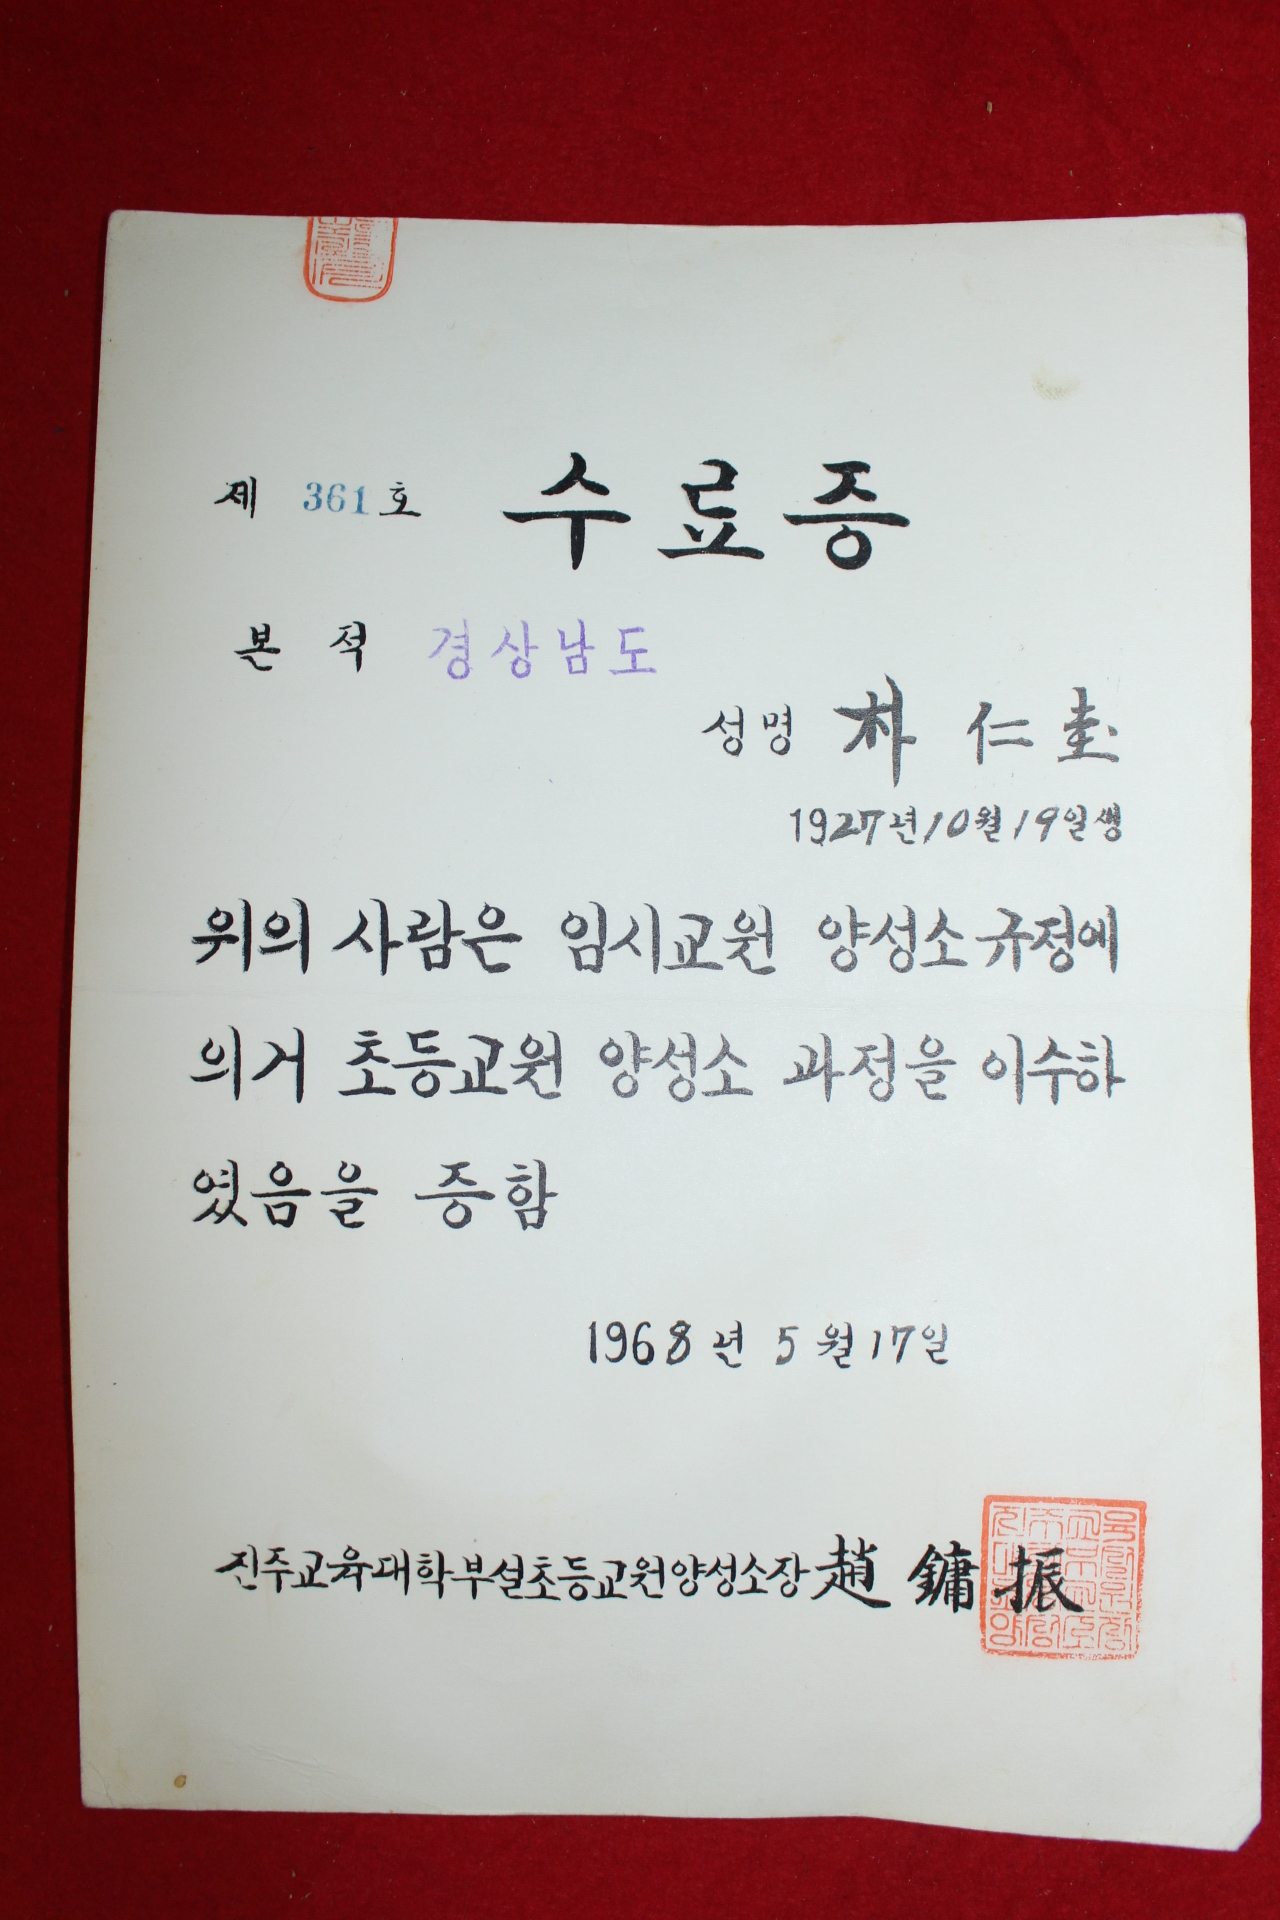 제 361호 수료증
본 적 경상남도
성명 朴 仁 圭
1927년10월19일생
위의 사람은 임시교원 양성소규정에
의거 초등교원 양성소 과정을 이수하
였음을 증함
1968년 5월17일
진주교육대학부설초등교원양성소장 趙鏞振